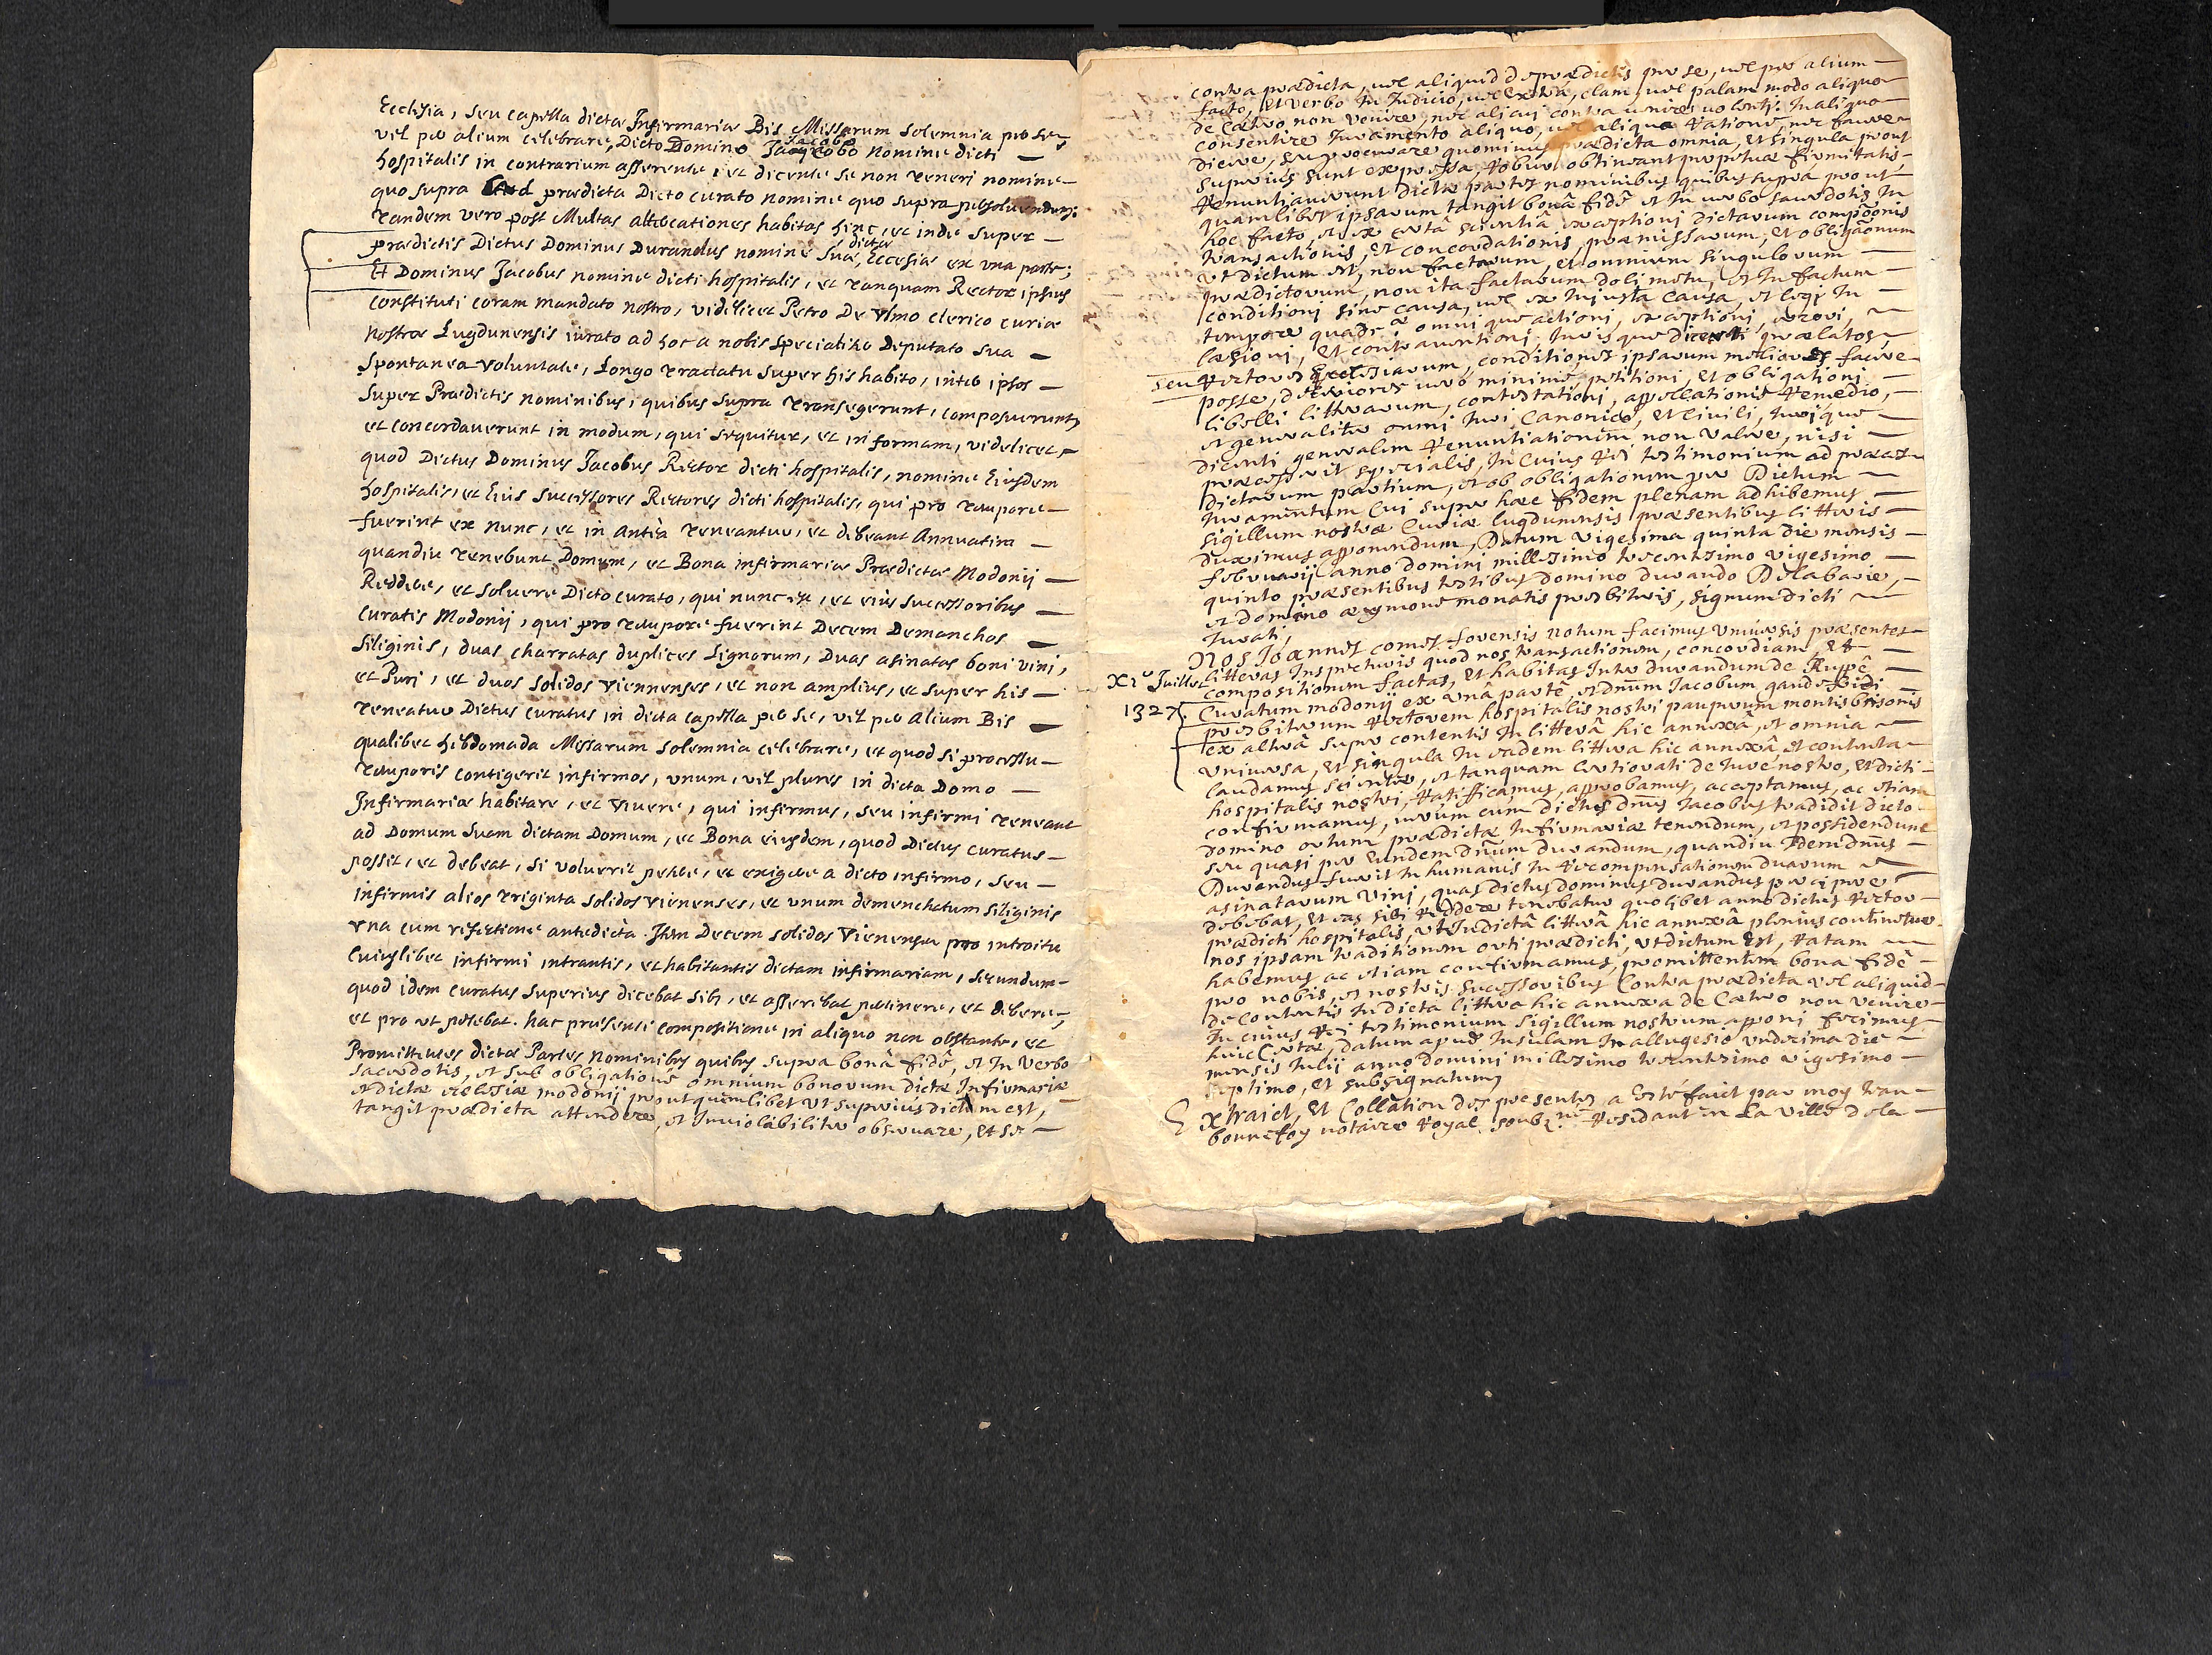 Ecclesia, seu capella dictæ Infirmariæ Bis Missarum solemnia per se,
vel per alium celebrare, Dicto Domino Jacobo Jacobo Nomine dicti
hospitalis in contrarium asserente, et dicente se non teneri nomine
quo supra ad prædicta Dicto curato nomine quo supra persolvendum.
tandem vero post Multas altercationes habitas hinc, et inde super
prædictis Dictus Dominus Durandus nomine suæ, dictæ Eccesiæ ex una parte;
Et Dominus Jacobus nomine dicti hospitalis, et tanquam Rector ipsius
constituti coram mandato nostro, videlicet Petro De Ulmo clerico curiæ
nostræ Lugdunensis iurato ad hoc a nobis specialiter Deputato sua
spontanea voluntate, Longo tractatu super his habito, inter ipsos
super Prædictis nominibus, quibus supra transegerunt, composuerunt,
et concordaverunt in modum, qui sequitur, et in formam, videlicet
quod Dictus Dominus Jacobus Rector dicti hospitalis, nomine Eiusdem
hospitalis, et Eius successores Rectores dicti hospitalis, qui pro tempore
fuerint ex nunc, et in anteà teneantur, et debeant Annuatim
quandiu tenebunt Domum, et Bona infirmariæ Prædictæ Modonij
Reddere, et solvere Dicto curato, qui nunc est, et eius successoribus
curatis Modonij, qui pro tempore fuerint Decem Demenchos
siliginis, duas charratas duplices Lignorum, Duas asinatas boni vini,
et Puri, et duos solidos viennenses, et non amplius, et super his
teneatur Dictus curatus in dicta capella per se, vel per alium Bis
qualibet hebdomada Missarum solemnia celebrare, et quod si processu
temporis contigerit infirmos, unum, vel plures in dicta Domo
Infirmariæ habitare, et vivere, qui infirmus, seu infirmi teneant
ad Domum suam dictam Domum, et Bona eiusdem, quod Dictus curatus
posset, et debeat, si voluerit petere, et exigere a dicto infirmo, seu
infirmis alios triginta solidos vienenses, et unum demenchatum siliginis
una cum refectione antedicta. Item Decem solidos Vienenses pro introitu
Cuiuslibet infirmi intrantis, et habitantis dictam infirmariam, secundum
quod idem curatus superius dicebat sibi, et asserebat pertinere, et debere,
et pro ut petebat. hac præsenti compositione in aliquo non obstante, et
Promittentes dictæ Partes nominibus quibus supra bonâ fidê, et In Verbo
sacerdotis, et sub obligatione omnium bonorum dictæ Infirmariæ
et dictæ ecclesiæ modonij prout quemlibet Ut superius dictum est,
tangit prædicta attendere, et Inviolabiliter observare, Et se
contra prædicta, vel aliquid de prædictis per se, vel per alium
facto, et verbo In Judicio, vel extra, clam, vel palam modo aliquo
de Cætero non venire, nec alicui contra venire volenti In aliquo
consentire Iuramento aliquo, vel aliqua ratione, nec facere
dicere, seu procurare quominus prædicta omnia, Et singula prout
superius sunt expressa, robur obtineant perpetuæ firmitatis
Renuntiaverunt dictæ partes nominibus quibus supra prout
quamlibet ipsarum tangit bonâ fidê et In verbo sacerdotis In
hoc facto, et ex certâ scientiâ exceptioni dictarum compõonis
transactionis, Et concordationis, præmissarum, Et obligãonum
ut dictum est, non factarum, et omnium singulorum
prædictorum, non ita factarum doli metu, et In factum
conditioni sine causa, vel ex Injusta causa, et legi In
tempore omni que actioni, exceptioni, errori,
læsioni, Et contraventioni, Iuris que dicenti prælatos,
seu Rectores Ecclesiarum, conditiones ipsarum meliores facere
posse, deteriores vero minime, petitioni, Et obligationi
libelli litterarum, contestationi, appellationis remedio,
et generaliter omni Iuri Canonico, Et Civili, Iuri que
dicenti generalem Renuntiationem non valere, nisi
præcesserit specialis, In Cuius rei testimonium ad preces
dictarum partium, et ob obligationem per Dictum
Iuramentum Cui super hæc fidem plenam adhibemus
sigillum nostræ Curiæ lugdunensis præsentibus litteris
duximus apponendum, Datum vigesima quinta die mensis
februarij anno domini millesimo trecentesimo vigesimo
quinto præsentibus testibus Domino durando Delabarie,
et domino aymone monatis presbiteris, signum dicti
Iurati,
Nos Joannes comes forensis notum facimus Universis præsentes
XIe Juillet litteras Inspecturis quod nos transactionem, concordiam, Et
compositionem factas, Et habitas Inter durandum de Ruppê
1327. Curatum modonij ex unâ parte, et dnum Jacobum gaudefridi
presbiterum Rectorem hospitalis nostri pauperum montisbrisonis
ex alterâ super contentis In litterâ hic annexâ, et omnia
Universa, Et singula In eadem littera hic annexâ et contenta
laudamus scienter, et tanquam Certiorati de Iure nostro, Et dicti
hospitalis nostri, ratifficamus, approbamus, acceptamus, ac etiam
confirmamus, verum cum dictus dnus Jacobus tradidit dicto
domino ortum prædictæ Infirmariæ tenendum, et possidendum
seu quasi per Eundem dnum durandum, quandiu Idem dnus
Durandus fuerit In humanis In recompensationem duarum
asinatarum Vini, quas dictus dominus durandus percipere
debebat, Et eas sibi reddere tenebatur quolibet anno dictus Rector
prædicti hospitalis, ut In dictâ litterâ hic annexâ plenius continetur
nos ipsam traditionem orti prædicti, ut dictum Est, ratam
habemus ac etiam confirmamus, promittentem bona fidê
pro nobis, et nostris successoribus Contra prædicta vel aliquid
de contentis In dicta littera hic annexa de Cætero non venire
In cuius rei testimonium sigillum nostrum apponi fecimus
huic Cartæ, datum apud Insulam In allugesio undecima die
mensis Iulij anno domini millesimo trecentesimo vigesimo
septimo, Et subsignatum
Extraict, Et Collãtion des presentes a Esté faict par moy Jean
bonnefoy notaire Royal soubzné residant en La Ville de la